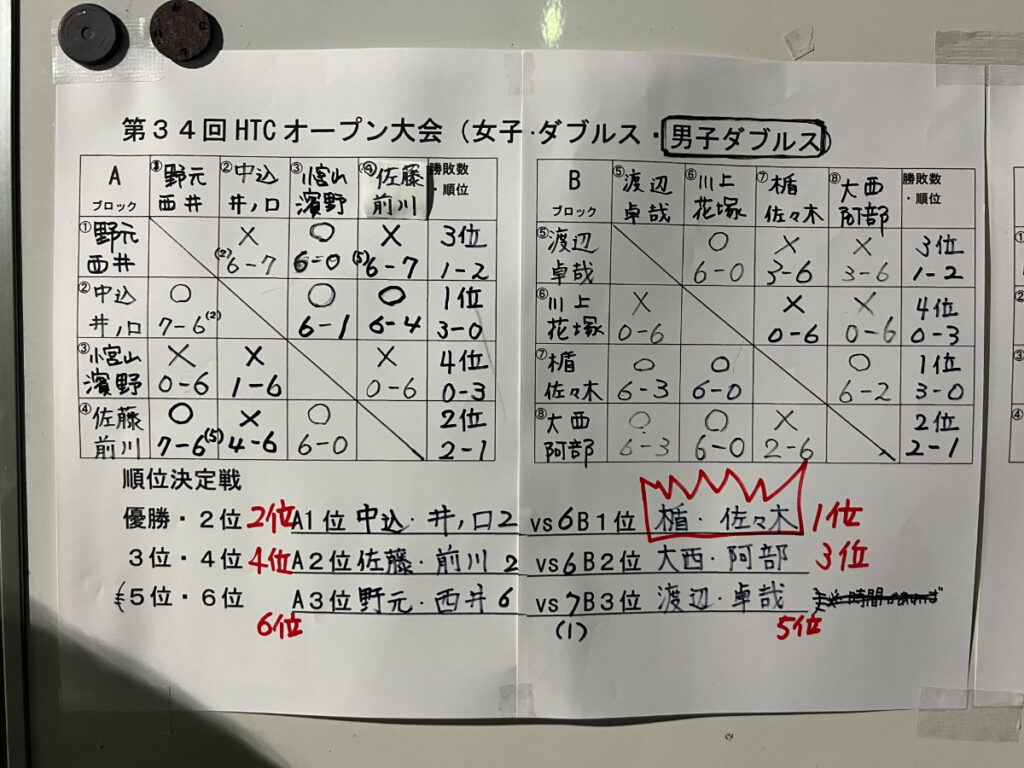 第34回 HTC オープン大会 (女子・ダブルス・男子ダブルス)
A ブロック ①野元 西井 ②中込 井ノ口 ③小宮山 濱野 ④佐藤 前川 勝敗数・順位
①野元 × ○ × 3位
西井 (2)6-7 6-0 (5)6-7 1-2
②中込 ○ ○ ○ 1位
井ノ口 7-6(2) 6-1 6-4 3-0
③小宮山 × × × 4位
濱野 0-6 1-6 0-6 0-3
④佐藤 ○ × ○ 2位
前川 7-6(5) 4-6 6-0 2-1
B ブロック ⑤渡辺 卓哉 ⑥川上 花塚 ⑦楯 佐々木 ⑧大西 阿部 勝敗数・順位
⑤渡辺 ○ × × 3位
卓哉 6-0 3-6 3-6 1-2
⑥川上 × × × 4位
花塚 0-6 0-6 0-6 0-3
⑦楯 ○ ○ ○ 1位
佐々木 6-3 6-0 6-2 3-0
⑧大西 ○ ○ × 2位
阿部 6-3 6-0 2-6 2-1
順位決定戦
優勝・2位 2位 A1位 中込・井ノ口 2 vs 6 B1位 楯・佐々木 1位
3位・4位 4位 A2位 佐藤・前川 2 vs 6 B2位 大西・阿部 3位
5位・6位 A3位 野元・西井 6 vs 7 B3位 渡辺・卓哉
6位 (1) 5位